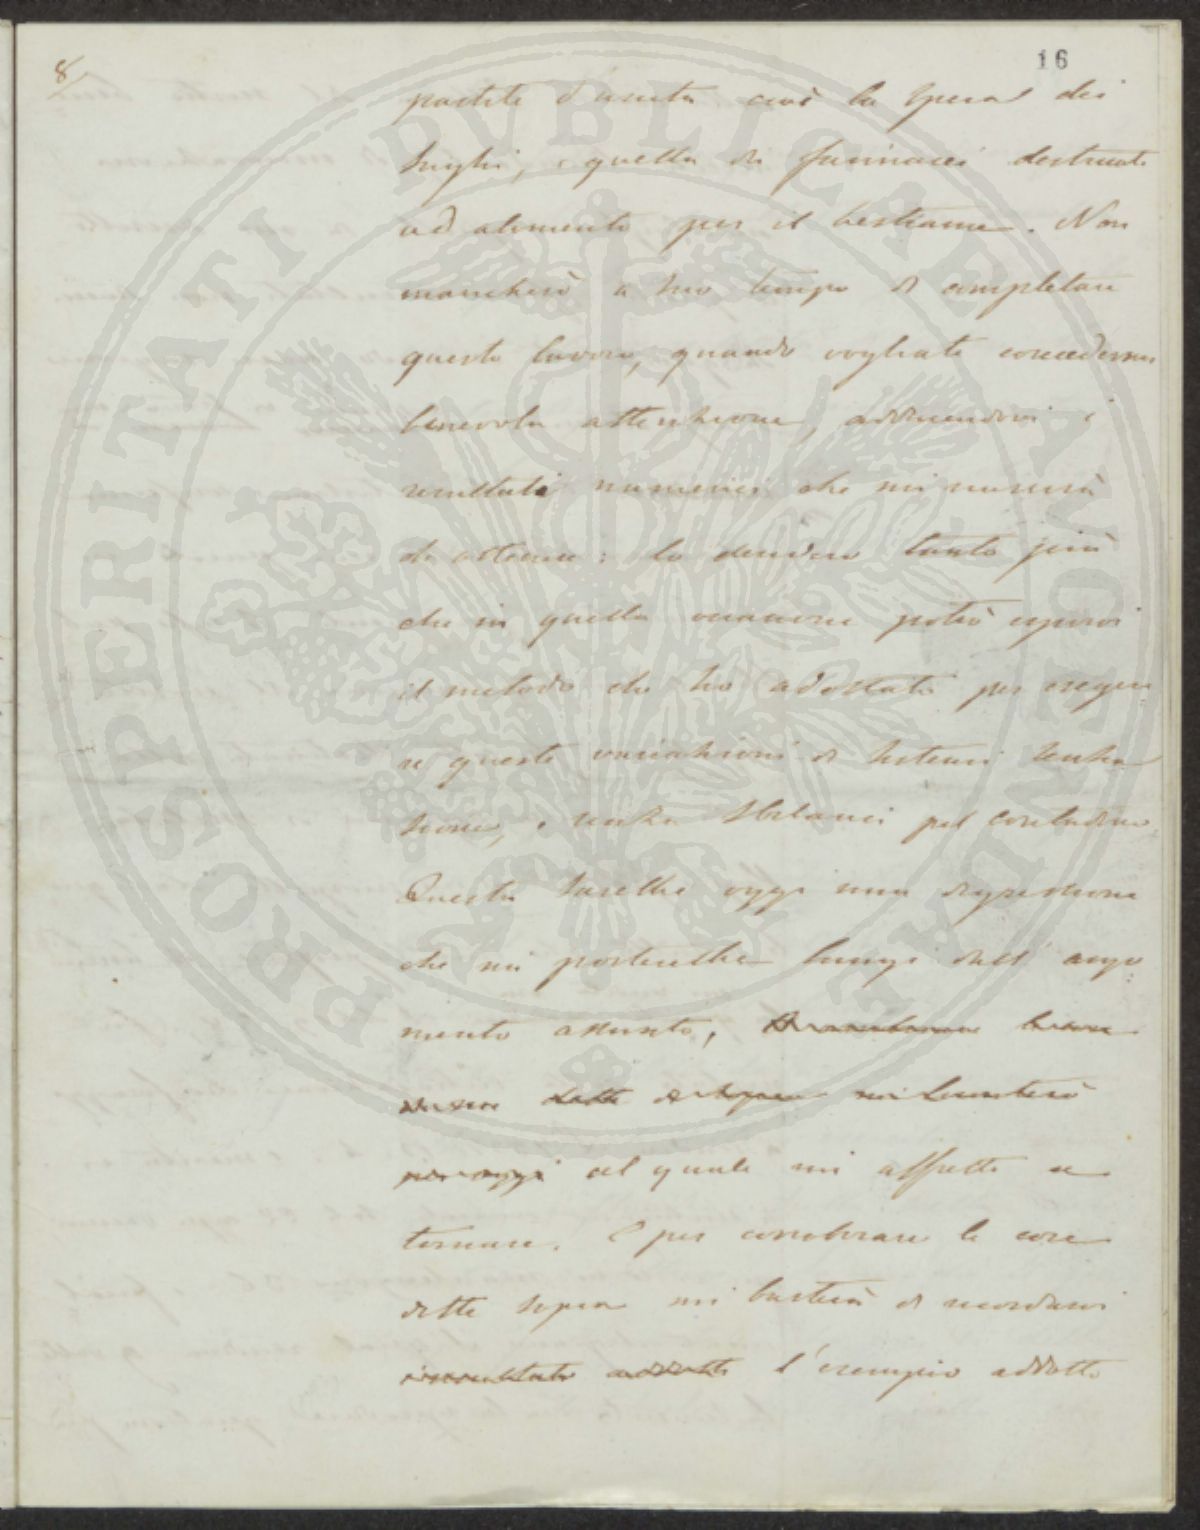 16
8
partite d'uscita cioè la spesa dei
lughi, e quella di farinacei destinati
ad alimento per il bestiame. Non
mancherò a suo tempo di completare
questo lavoro, quando vogliate concedermi
benevola attenzione, adducendovi i
resultati numerici che mi riuscirà
di ottenere: lo desidero tanto più
che in quella occasione potrò esporvi
il metodo che ho adottato per esegui
re queste variazioni di sistemi senza
scosse, e senza sbilanci pel contadino.
Questa sarebbe oggi una digressione
che mi porterebbe lungi dall' argo
mento assunto,
mi limiterò
per oggi al quale mi affretto a
tornare. E per corroborare le cose
dette sopra mi basterà di ricordarvi
addotto l'esempio addotto
PROSPERITATI PUBLICAE AUGENDAE